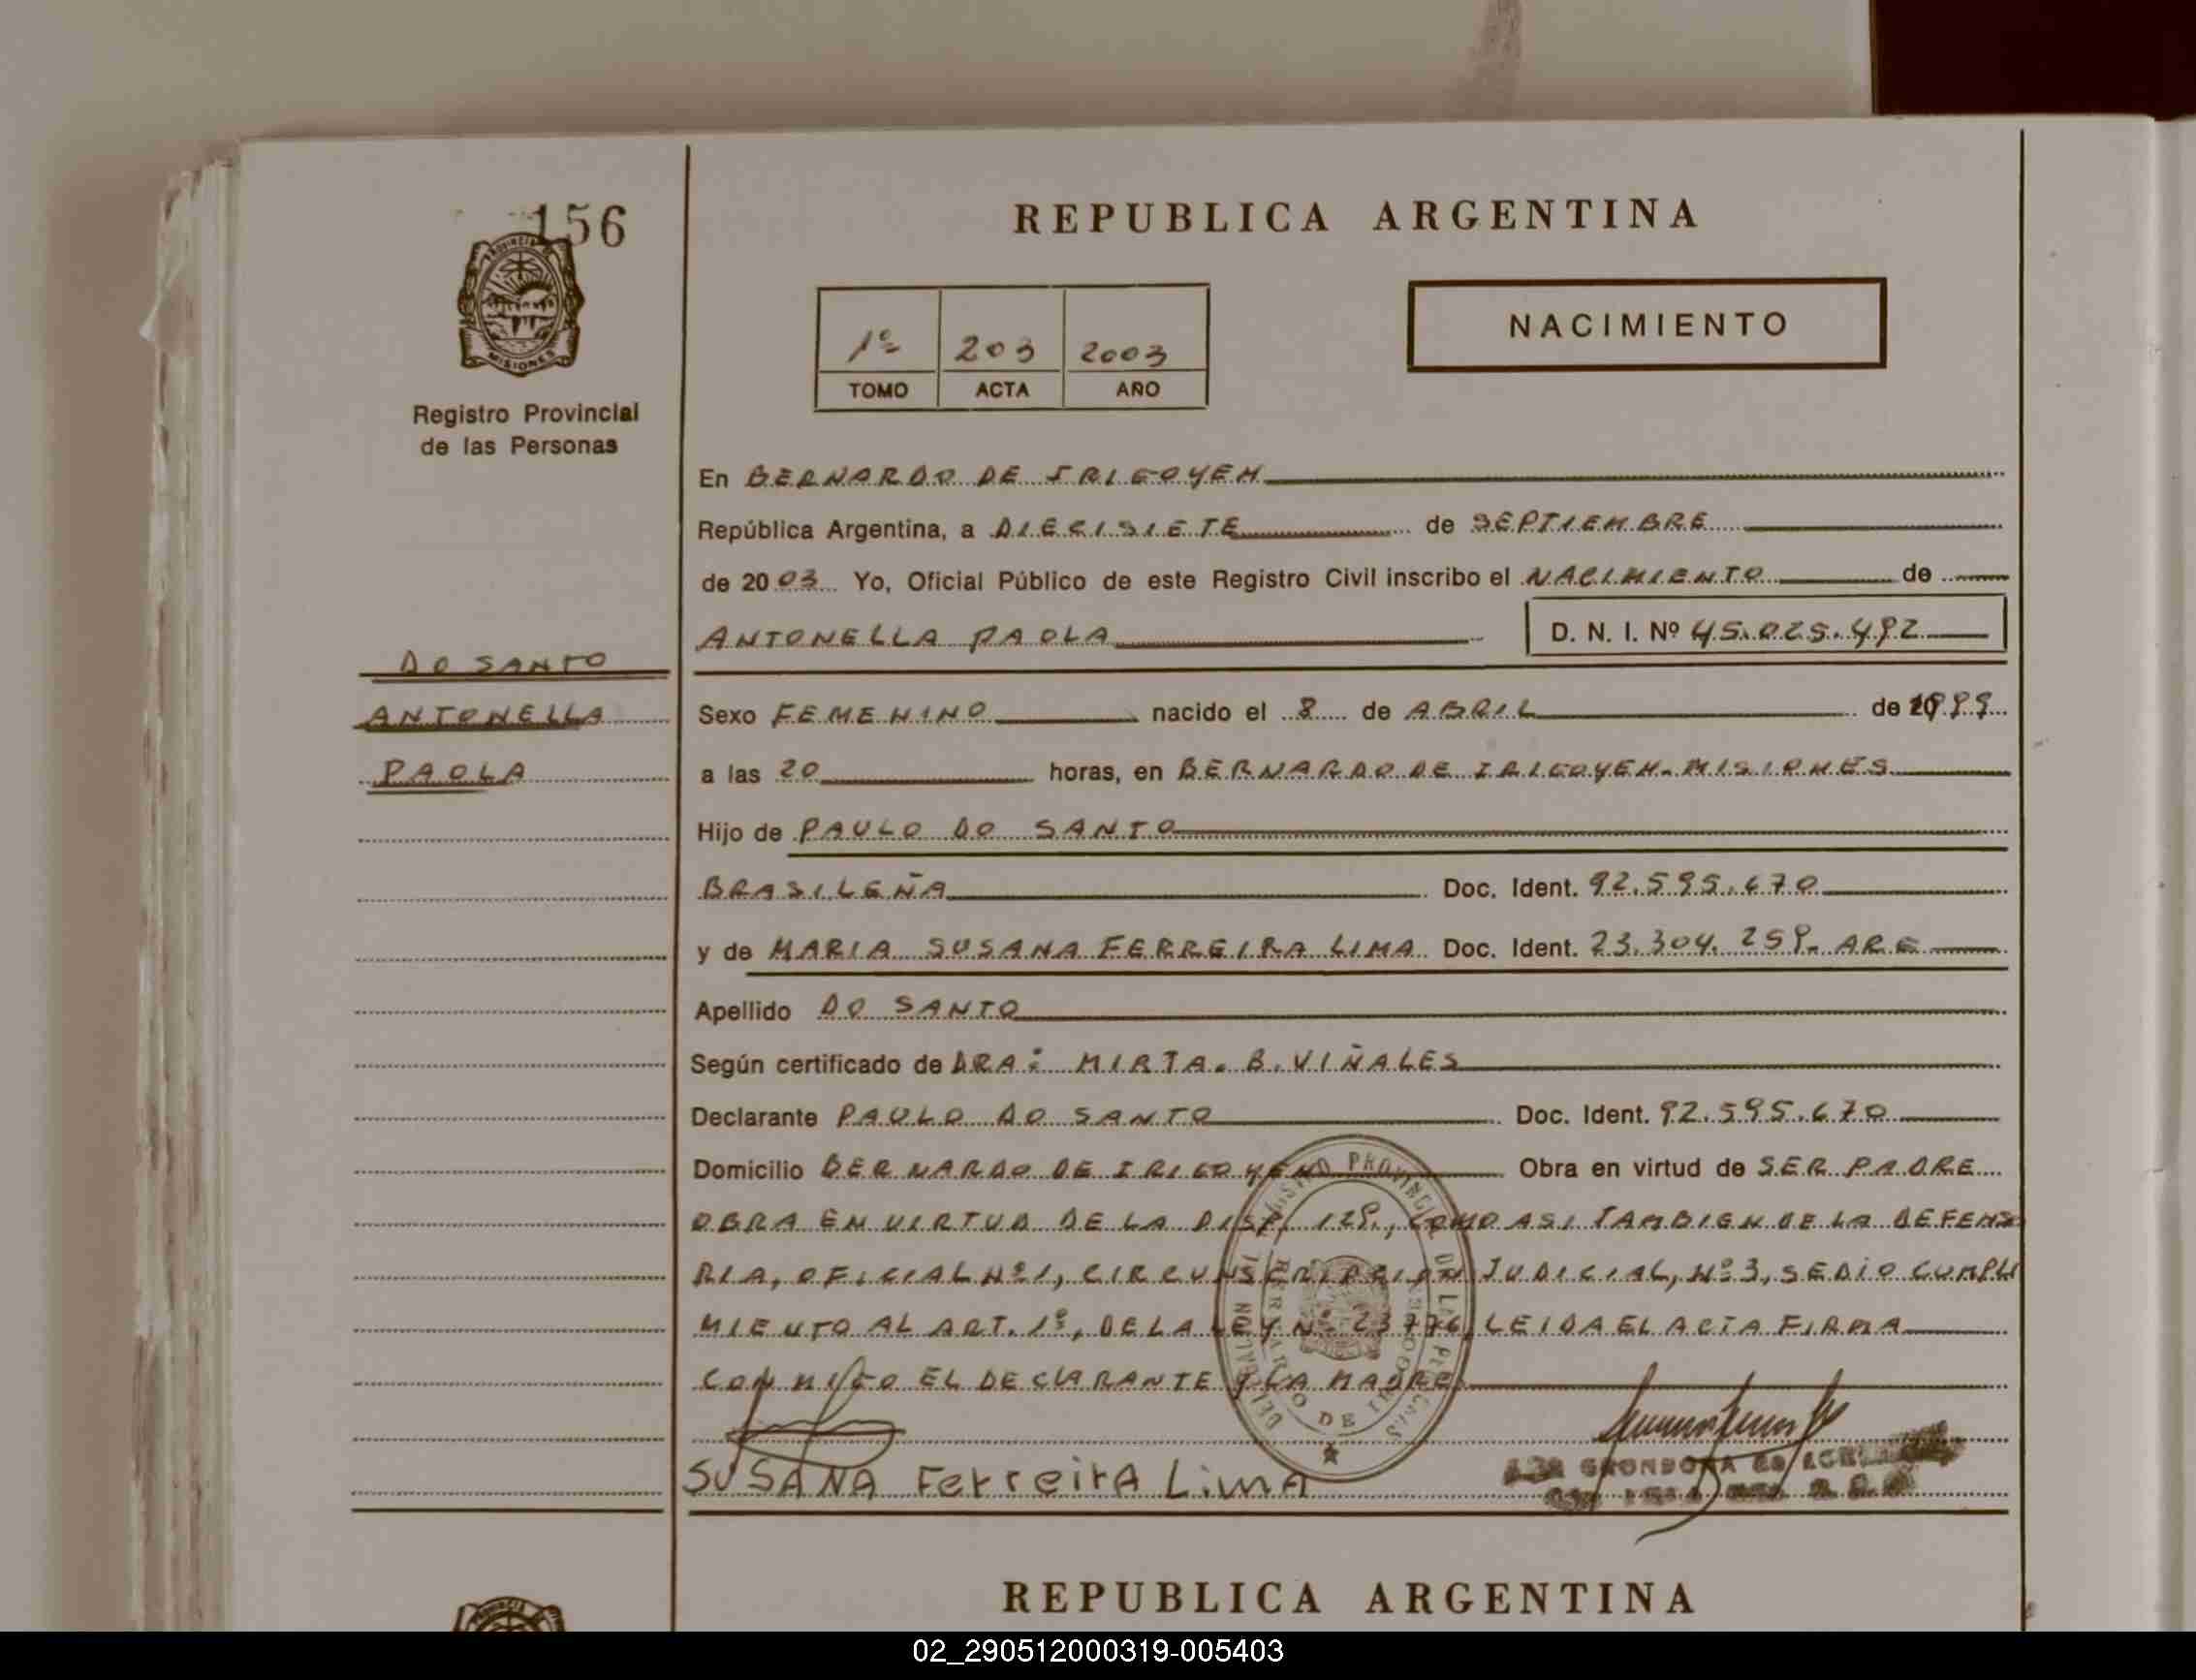 156
PROVINCIA DE
MISIONES
Registro Provincial
de las Personas
REPUBLICA ARGENTINA
NACIMIENTO
1º 203 2003
TOMO ACTA AÑO
En BERNARDO DE IRIGOYEN
República Argentina, a DIECISIETE de SEPTIEMBRE
de 2003 Yo, Oficial Público de este Registro Civil inscribo el NACIMIENTO de
ANTONELLA PAOLA D. N. I. Nº 45.025.492
DO SANTO
ANTONELLA
PAOLA
Sexo FEMENINO nacido el 8 de ABRIL de 1999
a las 20 horas, en BERNARDO DE IRIGOYEN. MISIONES
Hijo de PAULO DO SANTO
BRASILEÑA Doc. Ident. 92.595.670
y de MARIA SUSANA FERREIRA LIMA Doc. Ident. 23.304.259. ARG
Apellido DO SANTO
Según certificado de DRA: MIRTA. B. VIÑALES
Declarante PAULO DO SANTO Doc. Ident. 92.595.670
Domicilio BERNARDO DE IRIGOYEN Obra en virtud de SER PADRE
OBRA EN VIRTUD DE LA DISP. 129., COMO ASI TAMBIEN DE LA DEFENSO
RIA, OFICIAL Nº1, CIRCUNSCRIPCION JUDICIAL, Nº3, SE DIO CUMPLI
MIENTO AL ART. 1º, DE LA LEY Nº 23776, LEIDA EL ACTA FIRMA
CONMIGO EL DECLARANTE Y LA MADRE
SUSANA FerreirA LimA
REPUBLICA ARGENTINA
02_290512000319-005403